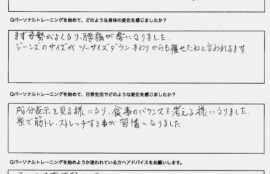 Qパーソナルトレーニングを始めて、どのような身体の変化を感じましたか?
まず姿勢がよくなり、腰痛が楽になりました。
ジーンズのサイズがツーサイズダウン まわりからも痩せたねと言われます。
Qパーソナルトレーニングを始めて、日常生活でどのような変化を感じましたか?
成分表示を見る様になり、食事のバランスを考える様になりました。
家で筋トレ、ストレッチする事が習慣になりました
Qパーソナルトレーニングを始めようか迷われている方へアドバイスをお願いします。